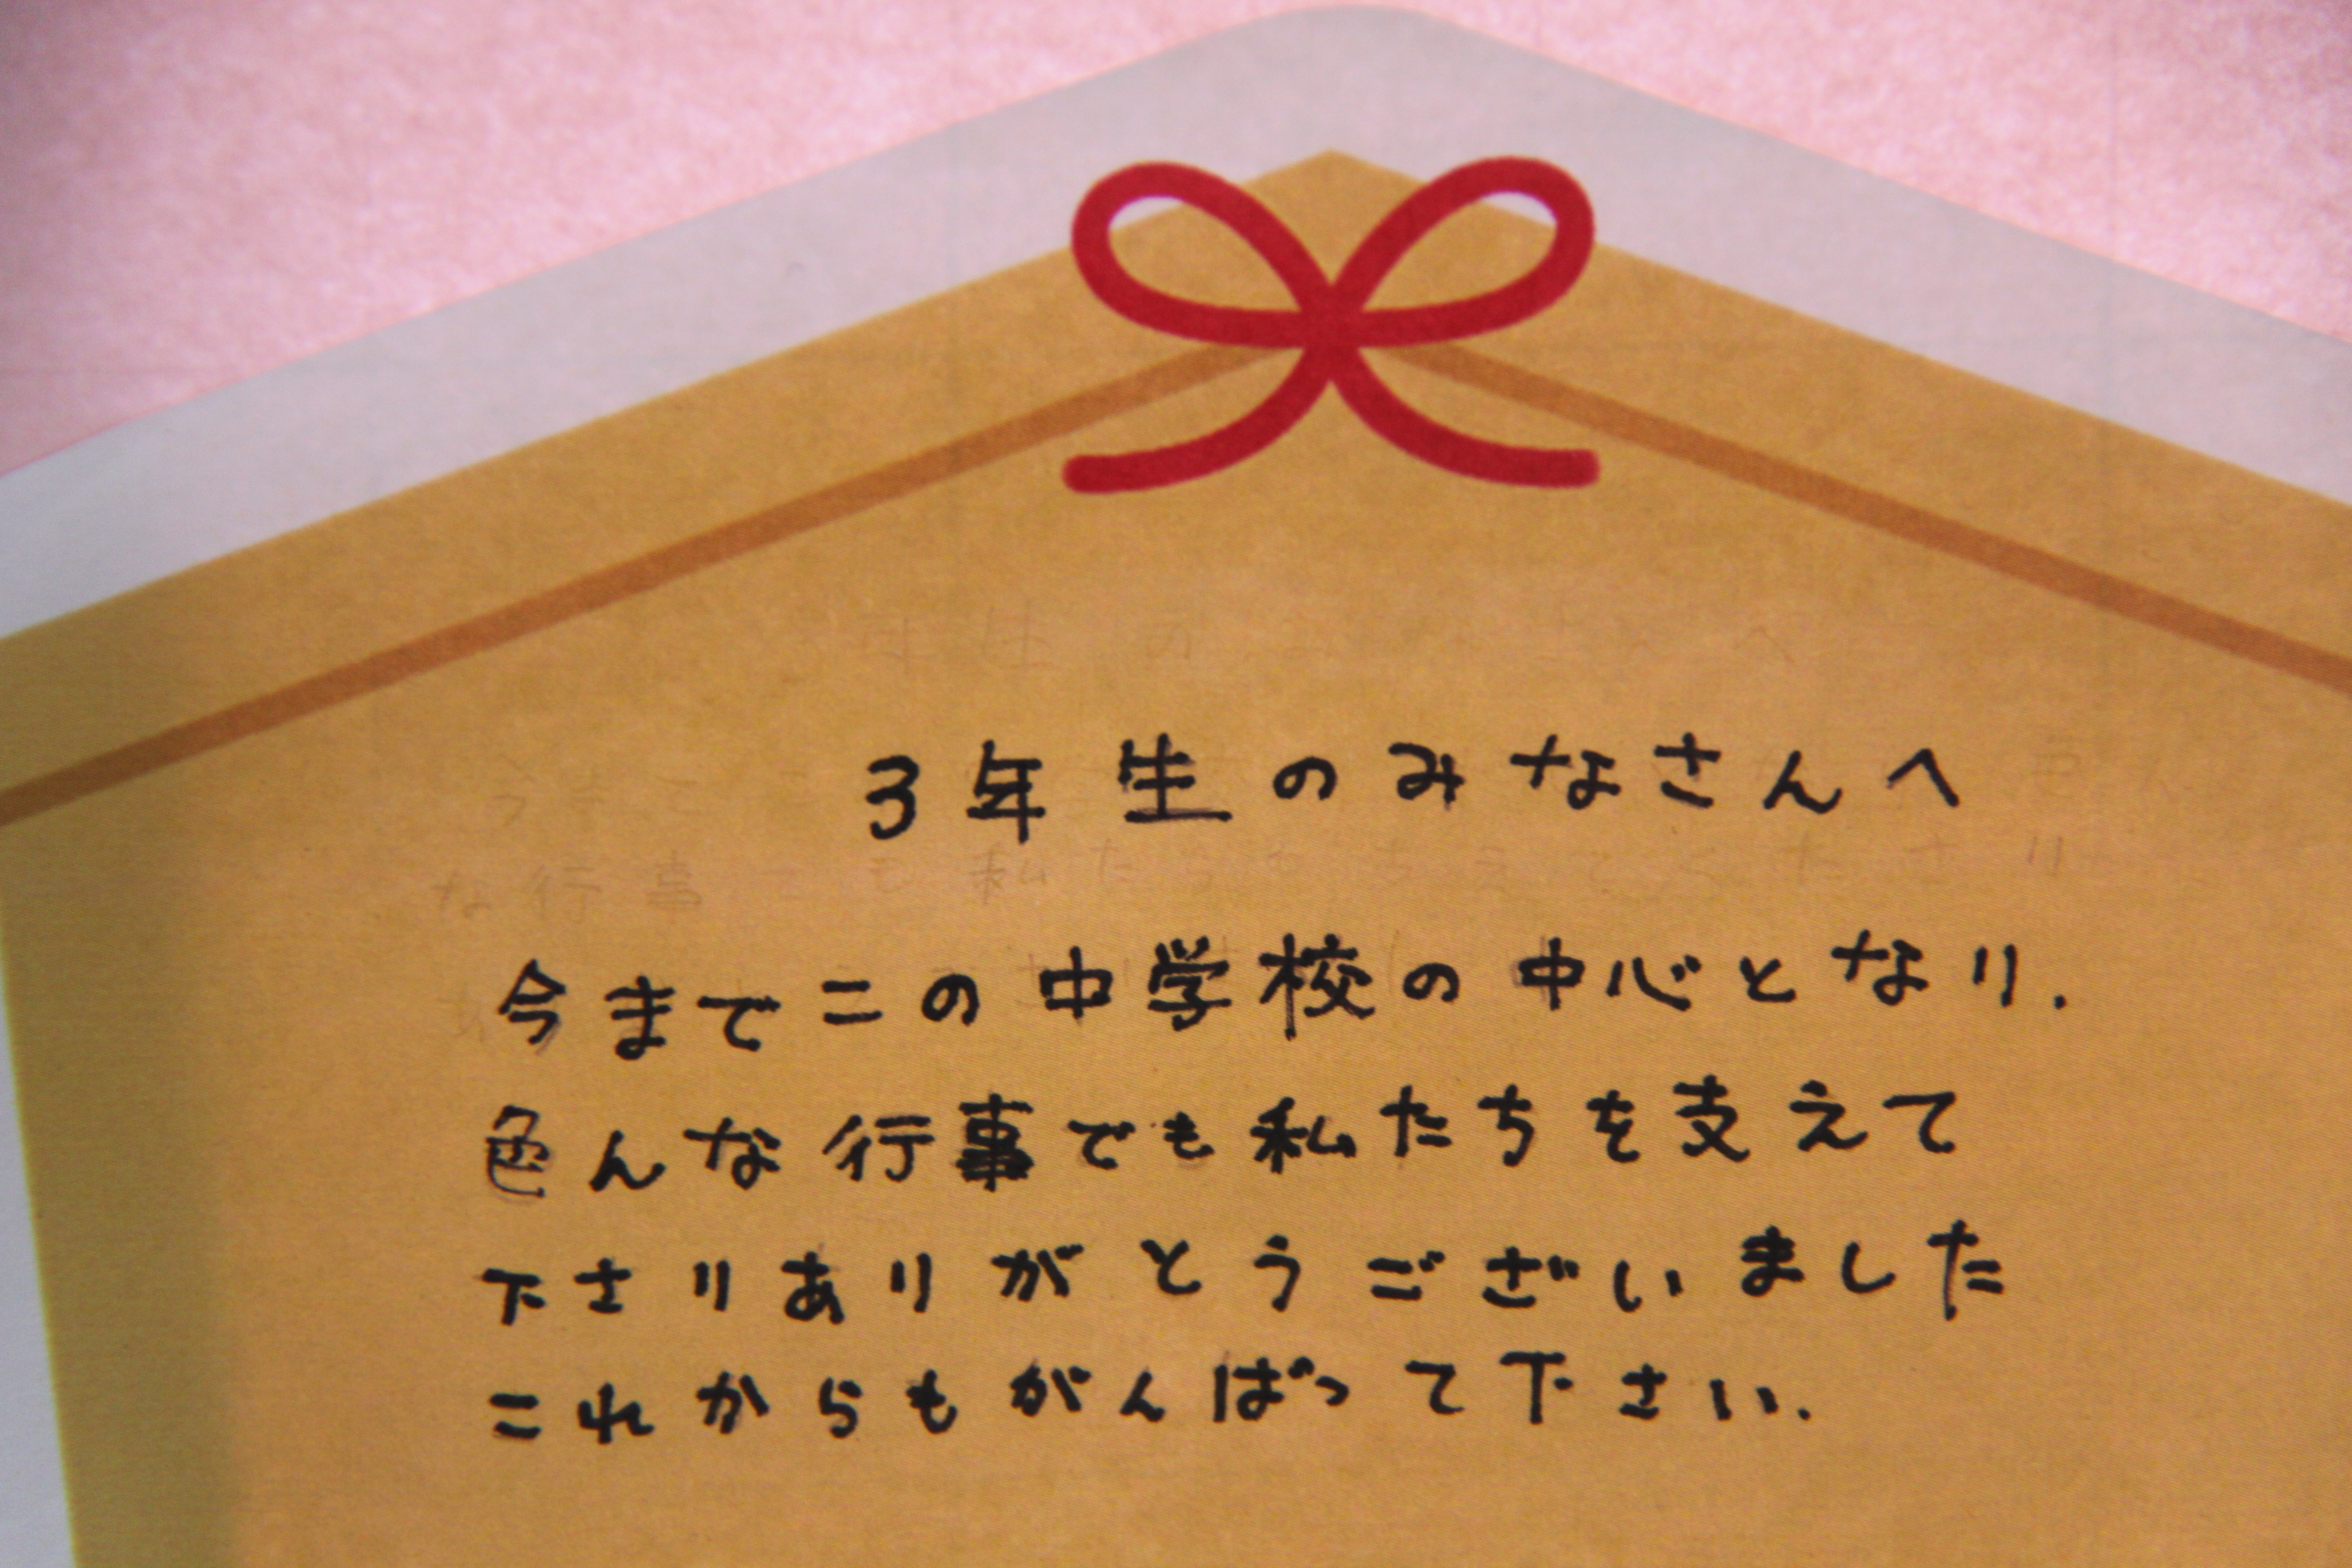 3年生のみなさんへ
今までこの中学校の中心となり.
色んな行事でも私たちを支えて
下さりありがとうございました
これからもがんばって下さい.